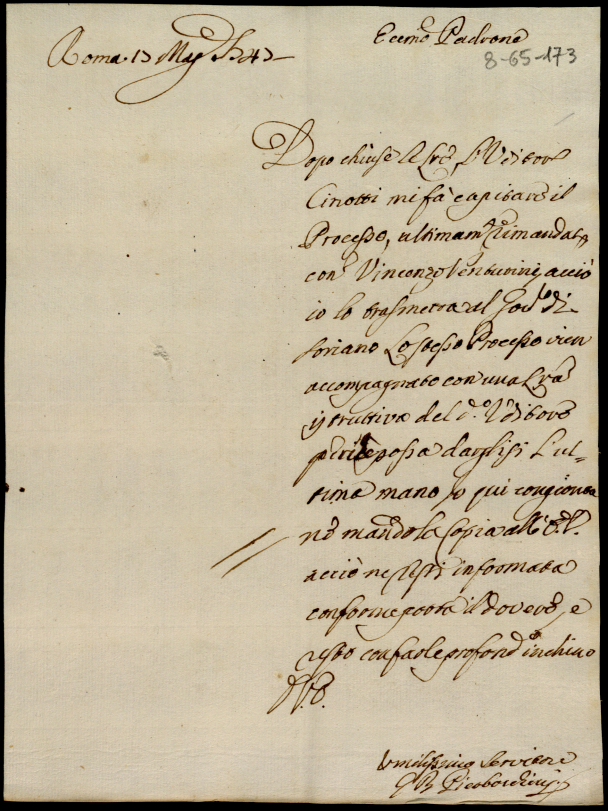 Eccmo Padrone
Roma 13 Mag. 1743
8-65-173
Dopo chiuse le lre, l'Uditore
Cinotti mi fà capitare il
Processo, ultimamte rimandato
con Vincenzo Venturini, acciò
io lo trasmetta al Gov.re di
Soriano. Lo stesso Processo vien
accompagnato con una lra
istruttiva del do Uditore
perche possa dargli si l'ul=
tima mano, e qui congionta
ne mando la Copia all' E. V.
acciò ne resti informata
conforme porta il dovere, e
resto con farle profondo inchino
D. V. E.
Umilissimo Servitore
G B